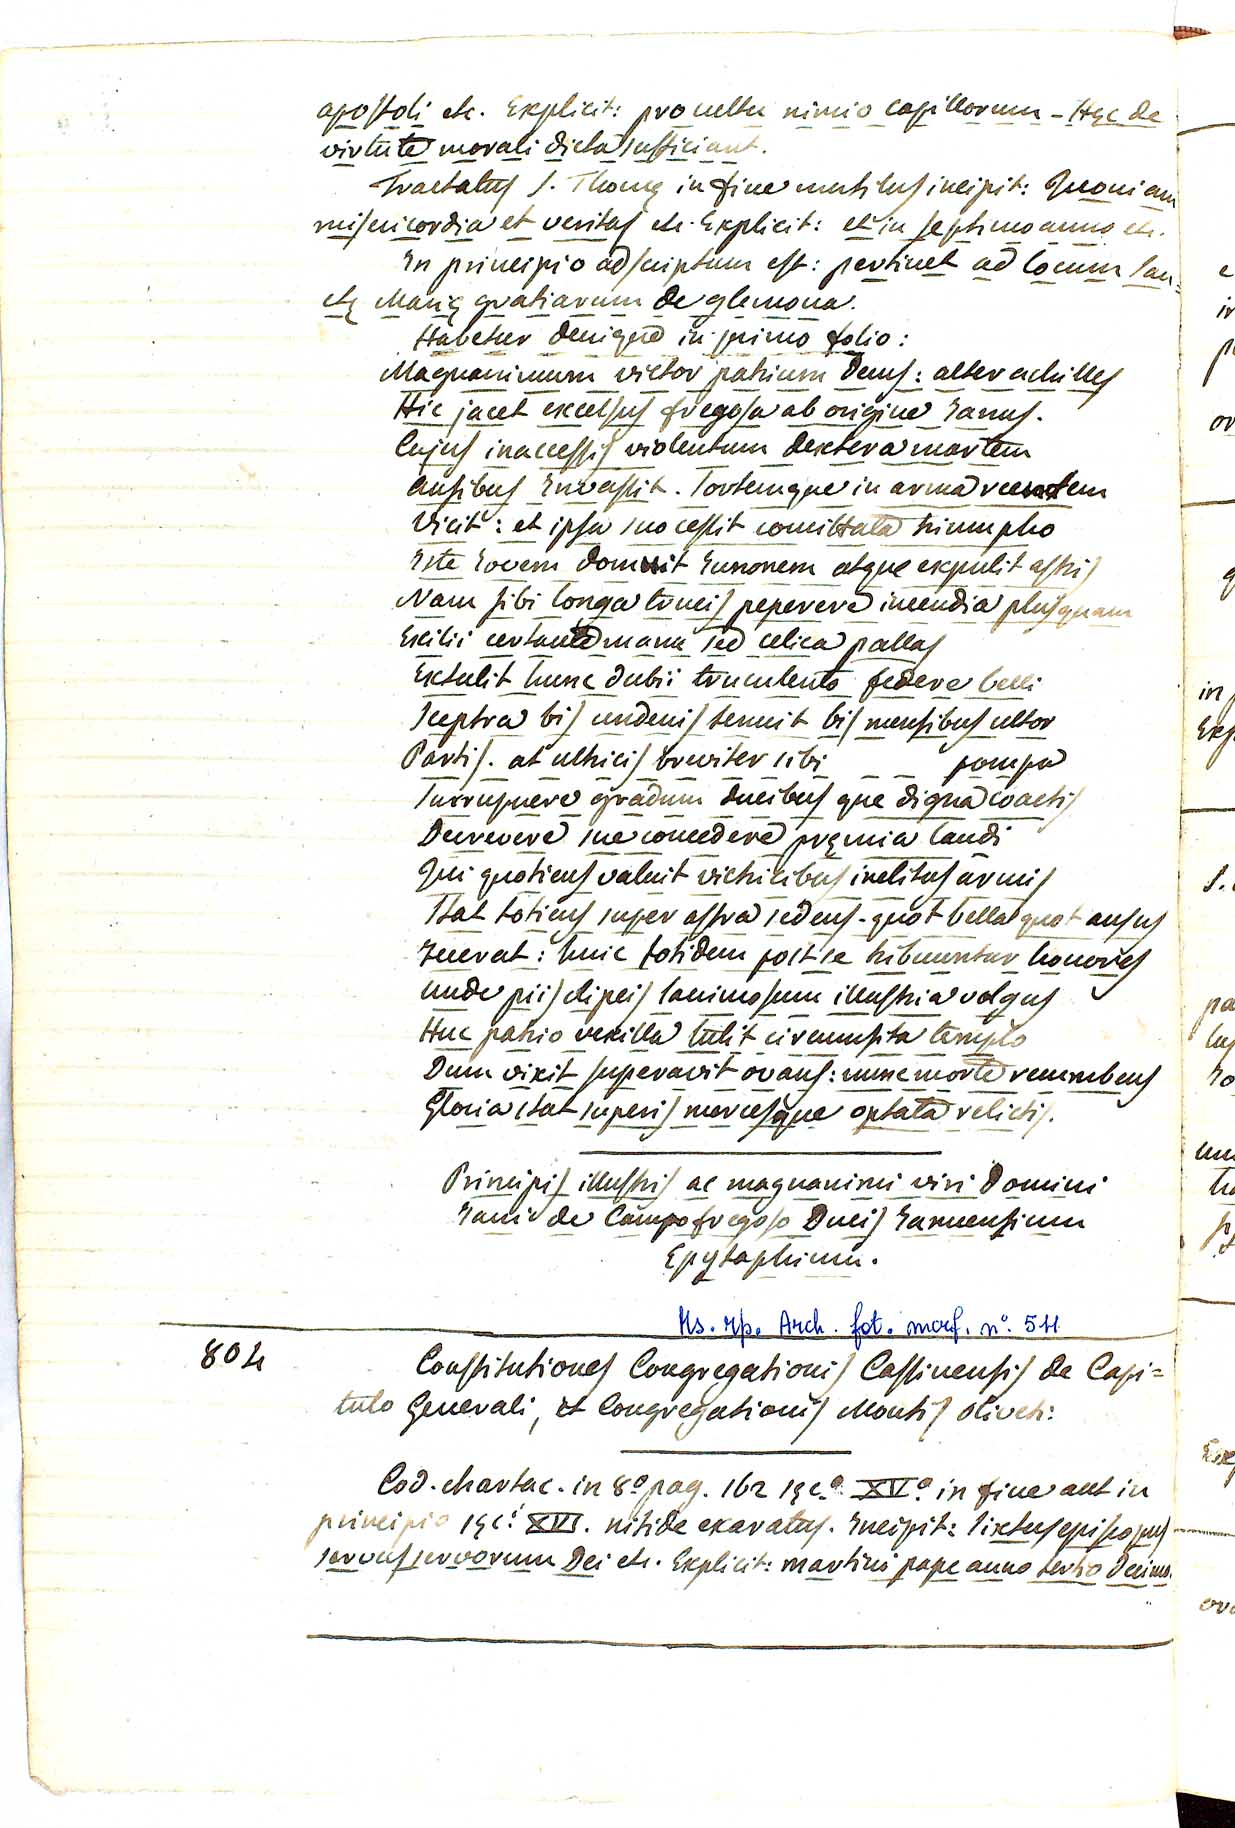 apostoli etc. Explicit: pro cultu nimio capillorum – Hęc de
virtute morali dicta sufficiant.
Tractatus S. Thomę in fine mutilus incipit: Quoniam
misericordia et veritas etc. Explicit: et in septimo anno etc.
In principio adscriptum est: pertinet ad locum San-
ctę Marię gratiarum de glemona.
Habetur denique in primo folio:
Magnanimum victor patrium deus: alter achilles
Hic jacet excelsus fregosa ab origine Ianus.
Cujus inaccessis violentum dextera martem
Ausibus invasit. Tortemque in arma
Vicit: et ipsa suo cessit comittata triumpho
Iste Iovem domuit Iunonem atque expulit astris
Nam sibi longa trucis peperere incendia plusquam
Exilii certante manu sed celica pallas
Extulit hunc dubii truculento federe belli
Sceptra bis undenis tenuit bis mensibus ultor
Partis. at ultricis breviter sibi _ _ pompa
gradum ducibus que digna coactis
Decrevere sue concedere pręmia laudi
Qui quotiens valuit victricibus inclitus armis
Stat totiens super astra sedens. quot bella quot ausus
: huic totidem post se tribuuntur honores
unde piis clipeis illustria volgus
Huc patrio vexilla tulit circumsita templo
Dum vixit superavit ovans: nunc morte recumbens
Gloria stat superis mercesque optata relictis.
Principis illustris ac magnanimi viri Domini
Iani de Campofregoso Ducis Ianuensium
Epytaphium.
Ms. rip. Arch. fot. morf. n°. 511
804
Constitutiones Congregationis Cassinensis de Capi=
tulo Generali, et Congregationis Montis Oliveti:
Cod. chartac. in 8° pag. 162 sęc.° XV.° in fine aut in
principio sęc.i XVI. nitide exaratus. Incipit: Sixtus episcopus
servus servorum Dei etc. Explicit: martini pape anno tertio decimo.